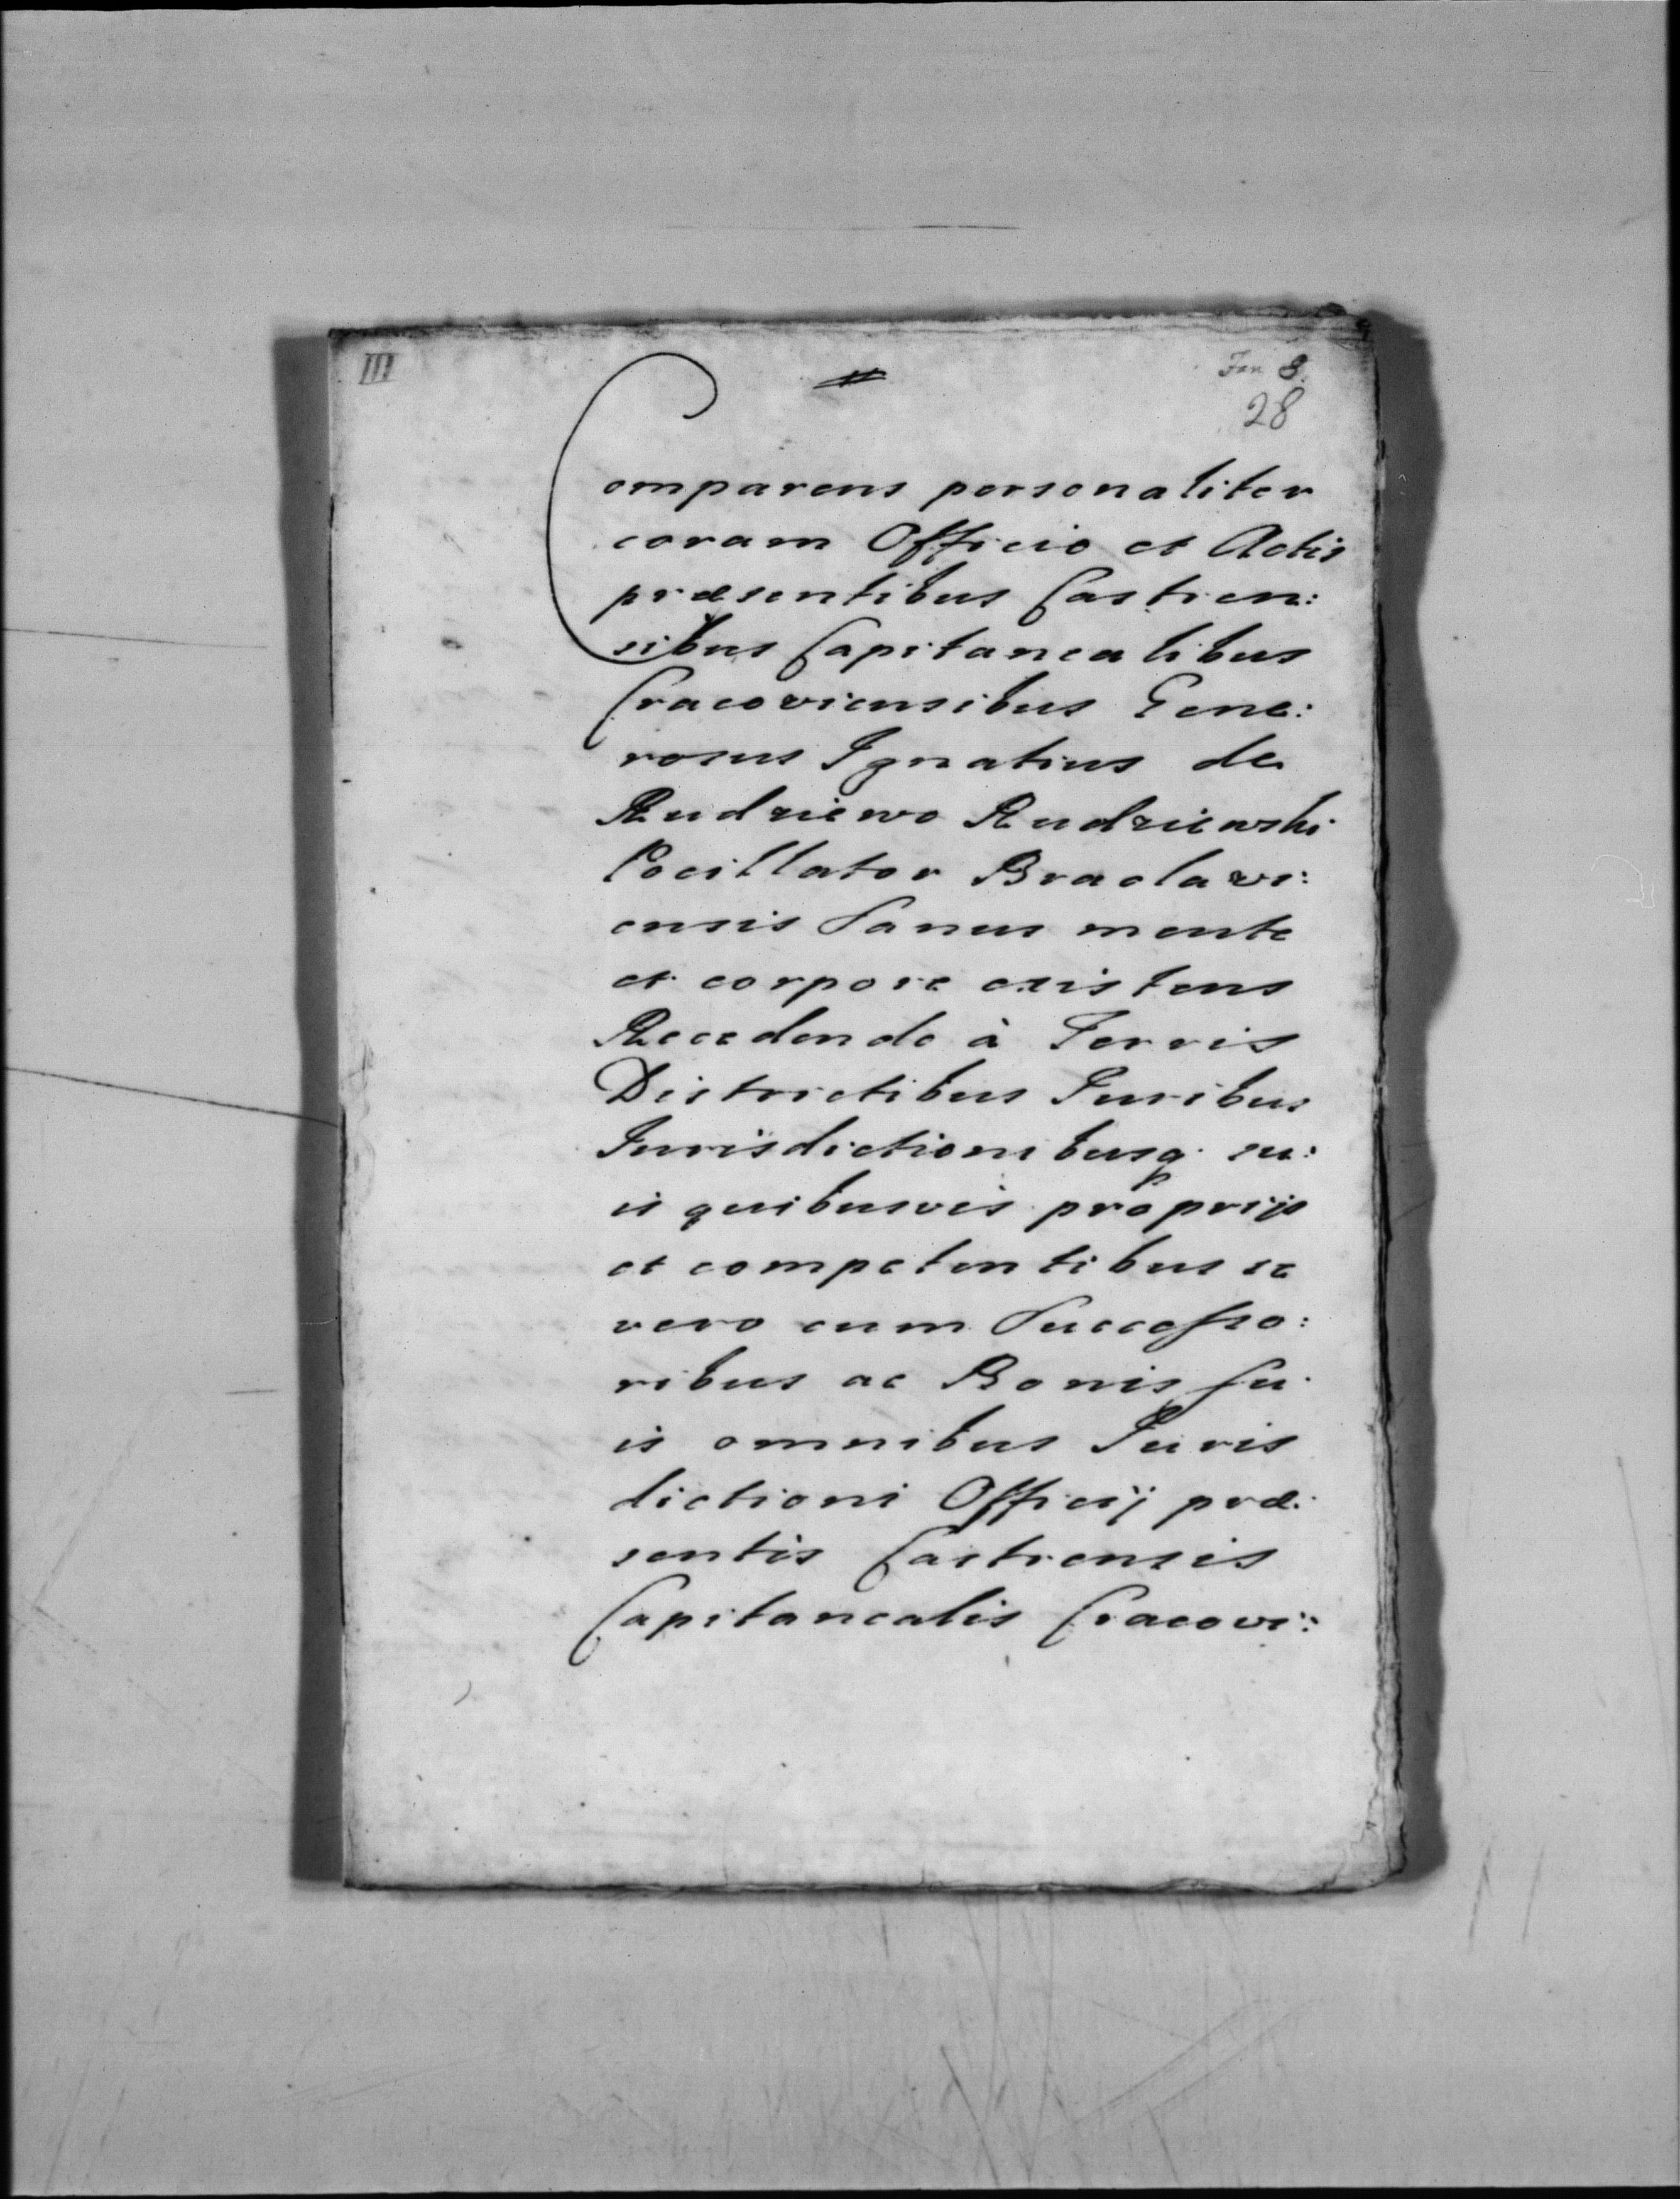 III
Fan 8.
28
Comparens personaliter
coram Officio et Actis
præsentibus Castren:
sibus Capitanealibus
Cracoviensibus Gene:
rosus Ignatius de
Rudziewo Rudziewski
Pocillator Braclavi:
ensis Sanus mente
et corpore existens
Recedendo à Terris
Districtibus Juribus
Jurisdictionibusq. su:
is quibusvis proprijs
et competentibus se
vero cum Successo:
ribus ac Bonis su.
is omnibus Juris
dictioni Officij præ:
sentis Castrensis
Capitanealis Cracovi: